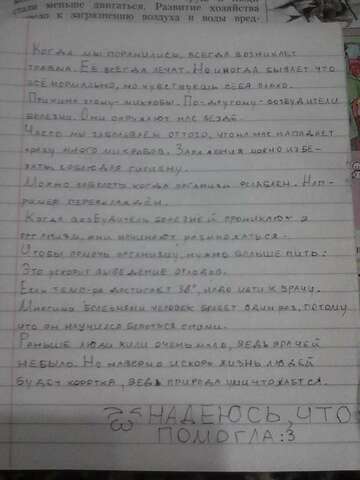 али меньше двигаться. Развитие хозяйства
к загрязнению воздуха и воды
Когда мы поранились, всегда возникает
травма. Её всегда лечат. Но иногда бывает что
всё нормально, но чувствуешь себя плохо.
Причина этому-микробы. По-другому-возбудители
болезни. Они окружают нас везде.
Часто мы заболеваем от того, что на нас нападает
сразу много микробов. Заражения можно избе-
жать соблюдая гигиену.
Можно заболеть когда организм ослаблен. Нап-
ример переохлаждён.
Когда возбудитель болезней проникают в
организм, они начинают размножаться.
Чтобы помочь организму, нужно больше пить:
Это ускорит выведение отходов.
Если темп-ра достигает 38°, надо идти к врачу.
Многими болезнями человек болеет один раз, потому
что он научился бороться с ними.
Раньше люди жили очень мало, ведь врачей
не было. Но наверно искоре жизнь людей
будет коротка, ведь природа уничтожается.
НАДЕЮСЬ, ЧТО
ПОМОГЛА:3